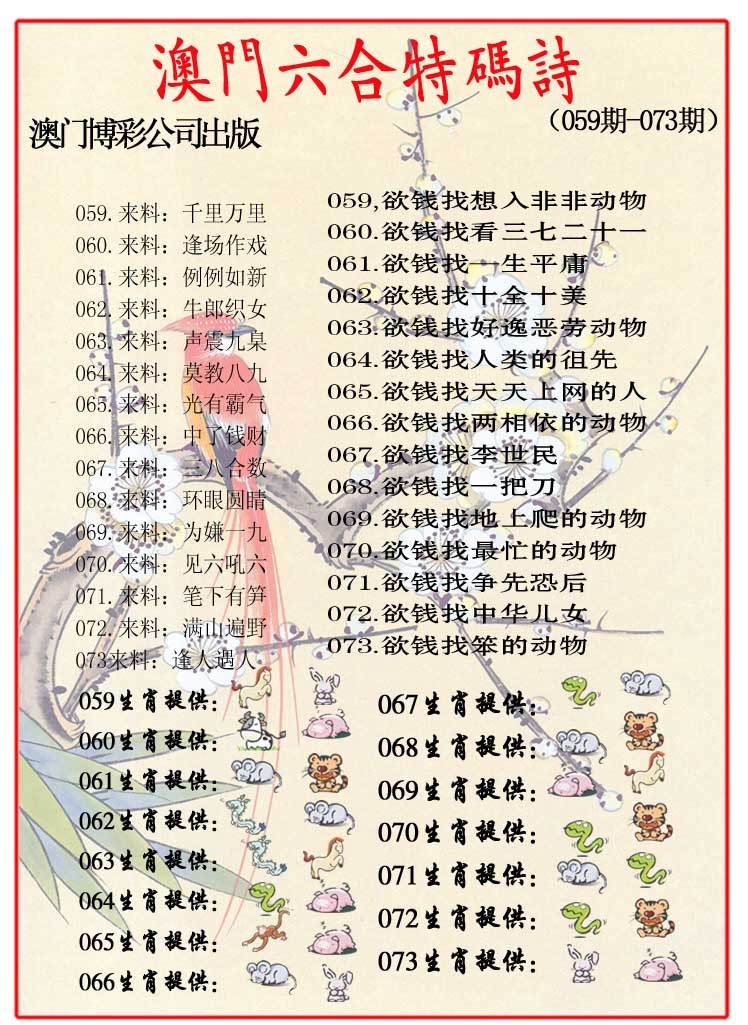 澳門六合特碼詩
澳门博彩公司出版
（059期-073期）
059.来料：千里万里
060.来料：逢场作戏
061.来料：例例如新
062.来料：牛郎织女
063.来料：声震九臬
064.来料：莫教八九
065.来料：光有霸气
066.来料：中了钱财
067.来料：三八合数
068.来料：环眼圆睛
069.来料：为嫌一九
070.来料：见六吼六
071.来料：笔下有笋
072.来料：满山遍野
073来料：逢人遇人
059,欲钱找想入非非动物
060.欲钱找看三七二十一
061.欲钱找一生平庸
062.欲钱找十全十美
063.欲钱找好逸恶劳动物
064.欲钱找人类的祖先
065.欲钱找天天上网的人
066.欲钱找两相依的动物
067.欲钱找李世民
068.欲钱找一把刀
069.欲钱找地上爬的动物
070.欲钱找最忙的动物
071.欲钱找争先恐后
072.欲钱找中华儿女
073.欲钱找笨的动物
059生肖提供：
060生肖提供：
061生肖提供：
062生肖提供：
063生肖提供：
064生肖提供：
065生肖提供：
066生肖提供：
067生肖提供：
068生肖提供：
069生肖提供：
070生肖提供：
071生肖提供：
072生肖提供：
073生肖提供：